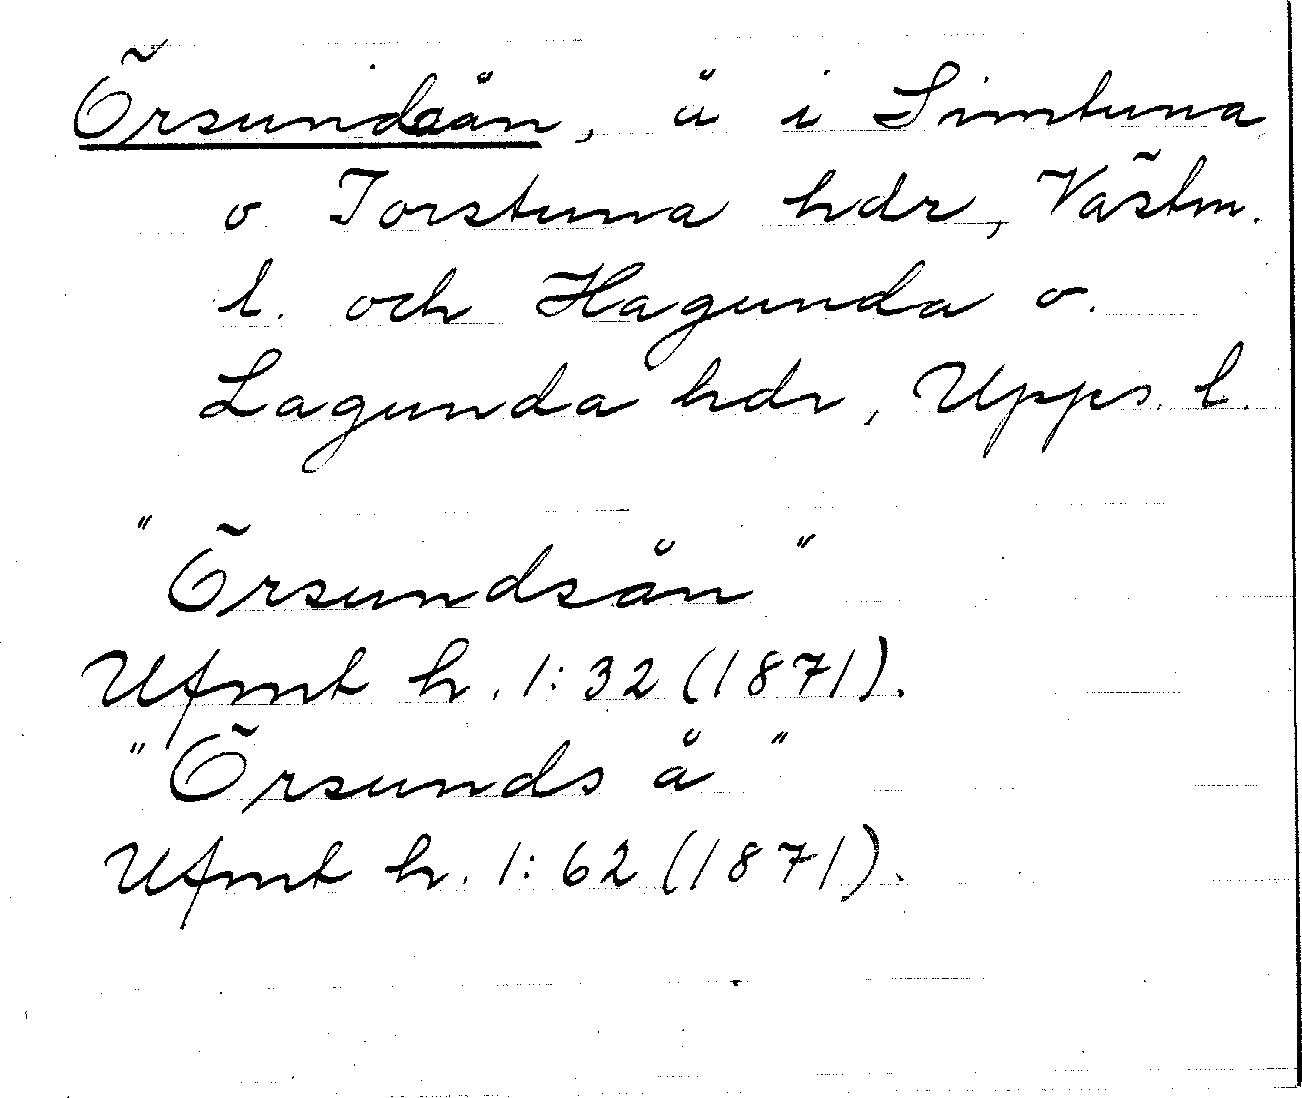 Örsundaån, å i Simtuna
o Torstuna hdr, Västm.
l. och Hagunda o.
Lagunda hdr, Upps. l.
"Örsundsån"
Ufmt h. 1:32 (1871).
"Örsunds å"
Ufmt h. 1:62 (1871).